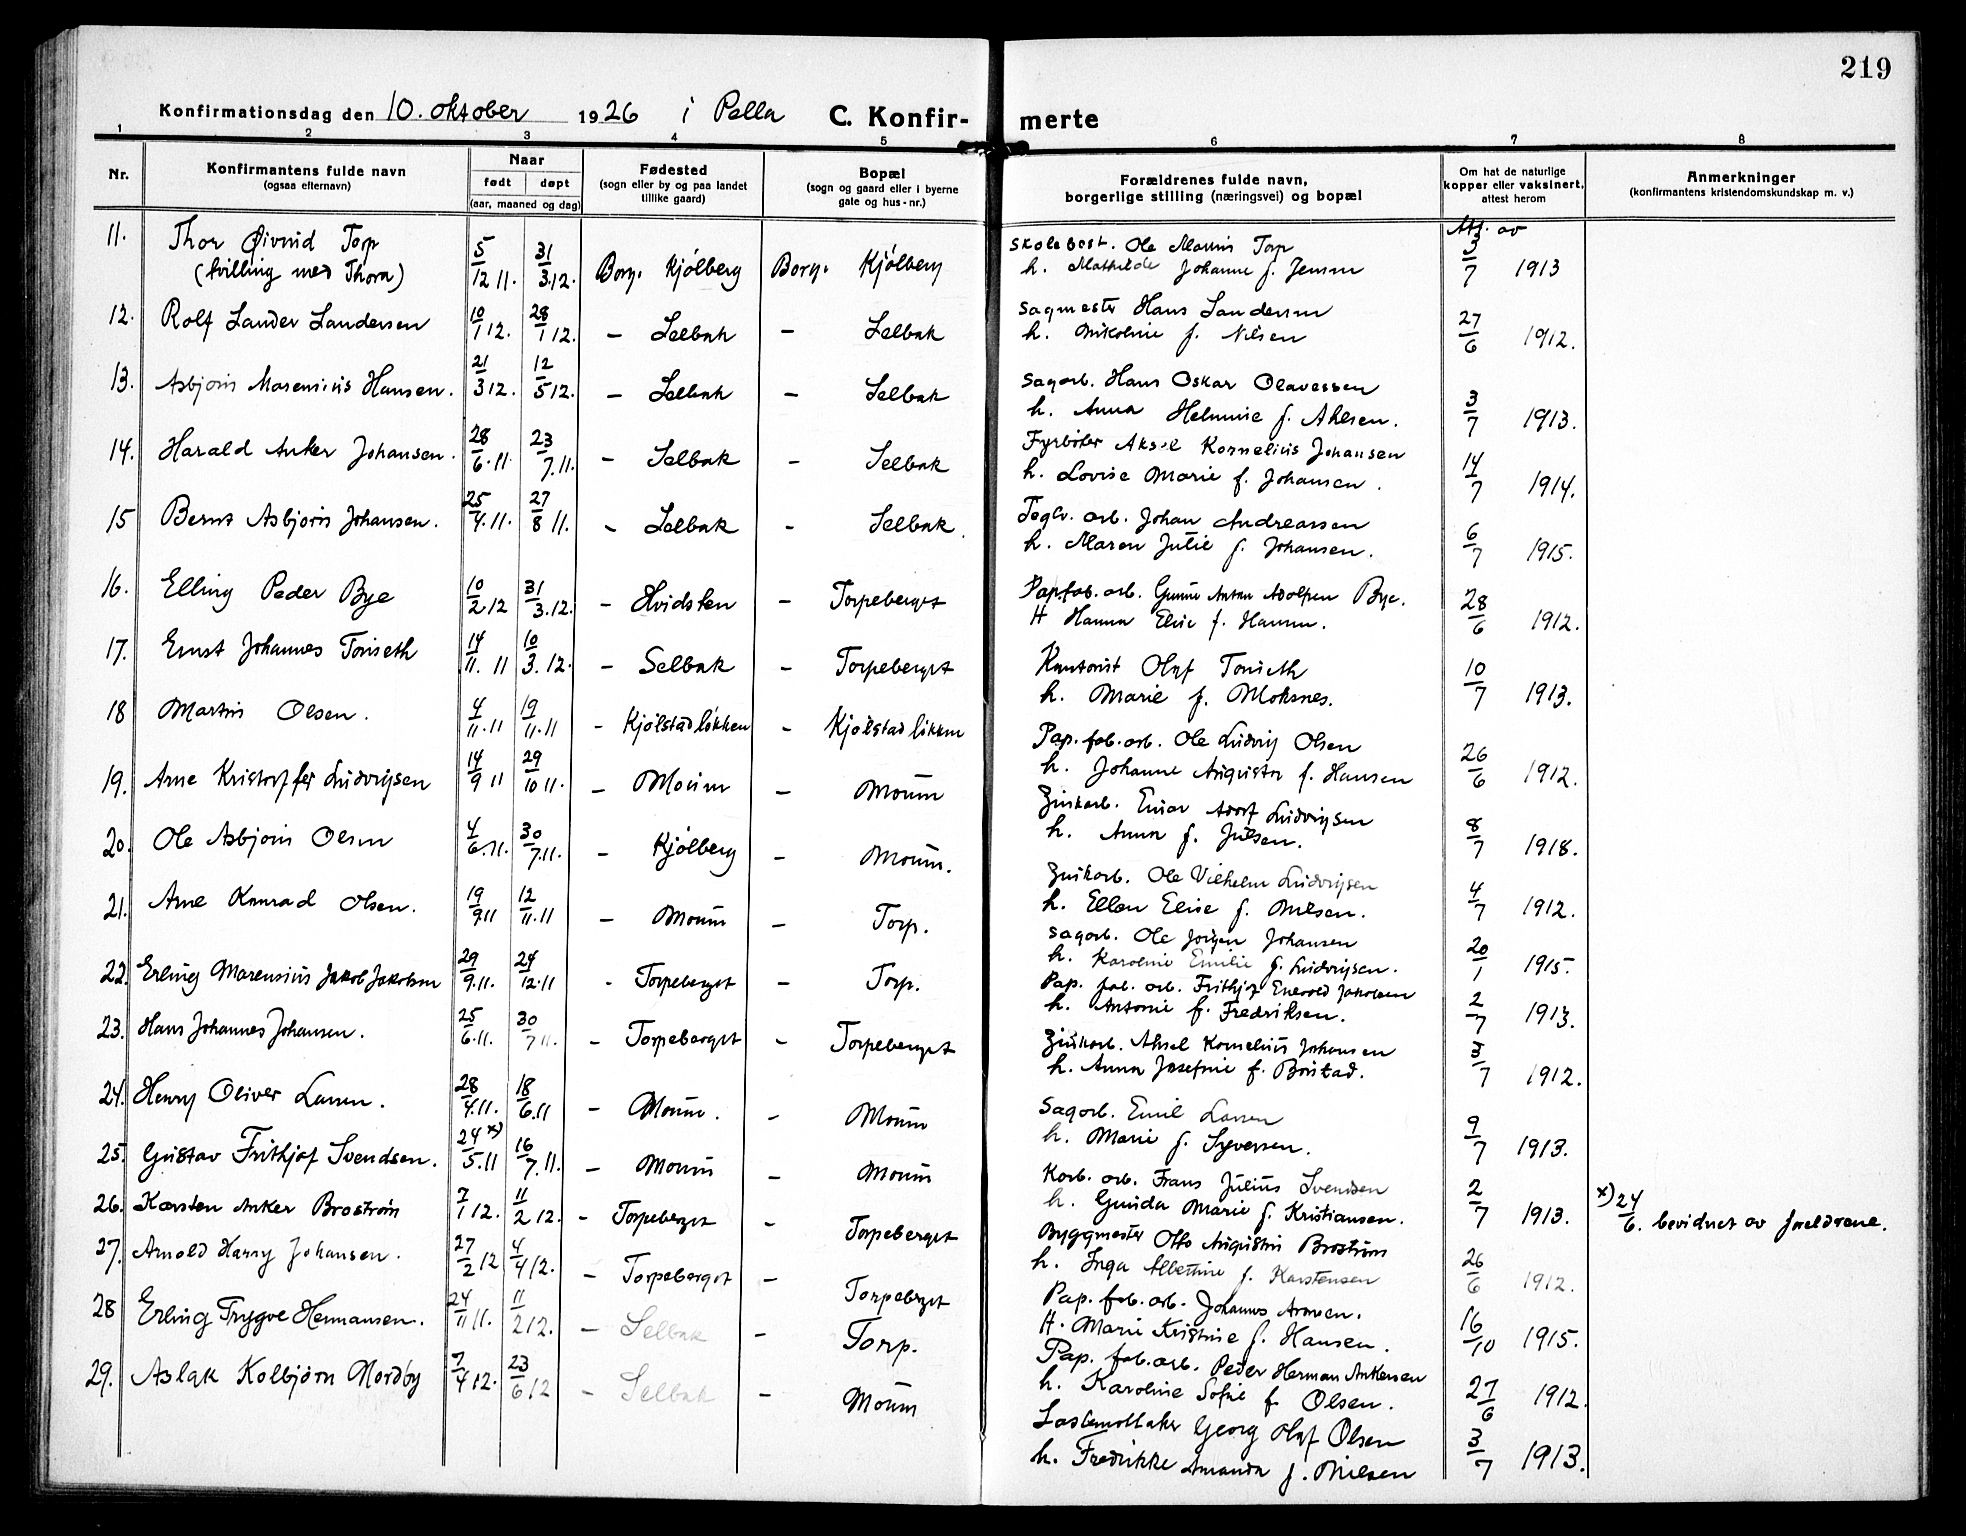 219
Konfirmationsdag den 10. oktober 1926 i Pella C. Konfir- merte
1 2 3 4 5 6 7 8
Nr. Konfirmantens fulde navn (ogsaa efternavn) Naar født døpt (aar, maaned og dag) Fødested (sogn eller by og paa landet tillike gaard) Bopæl (sogn og gaard eller i byerne gate og hus-nr.) Forældrenes fulde navn, borgerlige stilling (næringsvei) og bopæl Om hat de naturlige kopper eller vaksinert, attest herom Anmerkninger (konfirmantens kristendomskundskap m. v.)
11. Thor Øivind Torp Skolebest. Ole Marius Torp Att. av
(tvilling med Thora) 5/12 11. 31/3.12. Borge Kjølberg Borge Kjølberg h. Mathilde Johanne f. Jensen 3/7 1913
12. Rolf Sander Sandersen 10/1 12. 28/1 12. – Selbak – Selbak Sagmester Hans Sandersen
h. Nikoline f. Nilsen 27/6 1912.
13. Asbjørn Marenius Hansen. 21/3 12. 12/5 12. – Selbak – Selbak Sagarb. Hans Oskar Olavessen
h. Anna Helmine f. Ahlsen. 3/7 1913.
14. Harald Anker Johansen. 28/6.11. 23/7.11. – Selbak – Selbak Fyrbøter Aksel Kornelius Johansen
h. Lovise Marie f. Johansen. 14/7 1914.
15 Bernt Asbjørn Johansen. 25/4.11. 27/8 11. – Selbak – Selbak. Teglv. arb. Johan Andreassen
h. Maren Julie f. Johansen. 6/7 1915.
16. Elling Peder Bye 10/2 12 31/3.12. – Hvidsten – Torpeberget Pap.fab.arb. Gunne Anton Adolfsen Bye.
H Hanna Elise f. Hansen. 28/6 1912.
17. Ernst Johannes Tonseth 14/11. 11 10/3.12. – Selbak – Torpeberget Kantorist Olaf Tonseth
h. Marie f. Moksnes. 10/7 1913.
18 Martin Olsen. 4/11.11 19/11.11 – Kjølstadløkken – Kjølstadløkken Pap. fab. arb. Ole Ludvig Olsen
h. Johanne Augusta f. Hansen 26/6 1912.
19. Arne Kristoffer Ludvigsen 14/9 11 29/10 11. – Moum – Moum Zinkarb. Einar Adolf Ludvigsen
h. Anna f. Julsen. 8/7 1918.
20. Ole Asbjørn Olsen 4/6.11. 30/7.11. – Kjølberg – Moum. Zinkarb. Ole Vilhelm Ludvigsen
h. Ellen Elise f. Nilsen. 4/7 1912.
21. Arne Konrad Olsen. 19/9.11 12/11.11 – Moum – Torp. Sagarb. Ole Jørgen Johansen
h. Karoline Emilie f. Ludvigsen. 20/1 1915.
22. Erling Marensius Jakob Jakobsen 29/9.11. 24/12.11 – Torpeberget – Torp. Pap. fab. arb. Frithjof Enevold Jakobsen
h. Antonie f. Fredriksen. 2/7 1913.
23. Hans Johannes Johansen. 25/6.11. 30/7 11. – Torpeberget – Torpeberget Zinkarb. Aksel Kornelius Johansen
h. Anna Josefine f. Børstad. 3/7 1912.
24. Henry Oliver Larsen. 28/4.11. 18/6.11 – Moum. – Moum Sagarb. Emil Larsen
h. Marie f. Syversen. 9/7 1913.
25. Gustav Frithjof Svendsen. 24 x)/5.11 16/7.11. – Moum – Moum Karb. arb. Frans Julius Svendsen
h. Gunda Marie f. Kristiansen. 2/7 1913. x) 24/6. bevidnet av foreldrene.
26. Karsten Anker Brostrøm 7/1 12. 11/2 12. – Torpeberget – Torpeberget Byggmester Otto Augustin Brostrøm
h. Inga Albertine f. Karstensen 26/6 1912.
27. Arnold Harry Johansen. 27/2 12 4/4 12. – Torpeberget – Torpeberget Pap. fab. arb. Johannes Arnesen.
H. Marie Kristine f. Hansen. 16/10 1915.
28 Erling Trygve Hermansen. 24/11 11. 11/2 12. – Selbak – Torp. Pap. fab. arb. Peder Herman Ankersen
h. Karoline Sofie f. Olsen. 27/6 1912.
29. Aslak Kolbjørn Nordby 7/4 12. 23/6.12 – Selbak – Moum Lastemottaker Georg Olaf Olsen
h. Fredrikke Amanda f. Nilsen 3/7 1913.